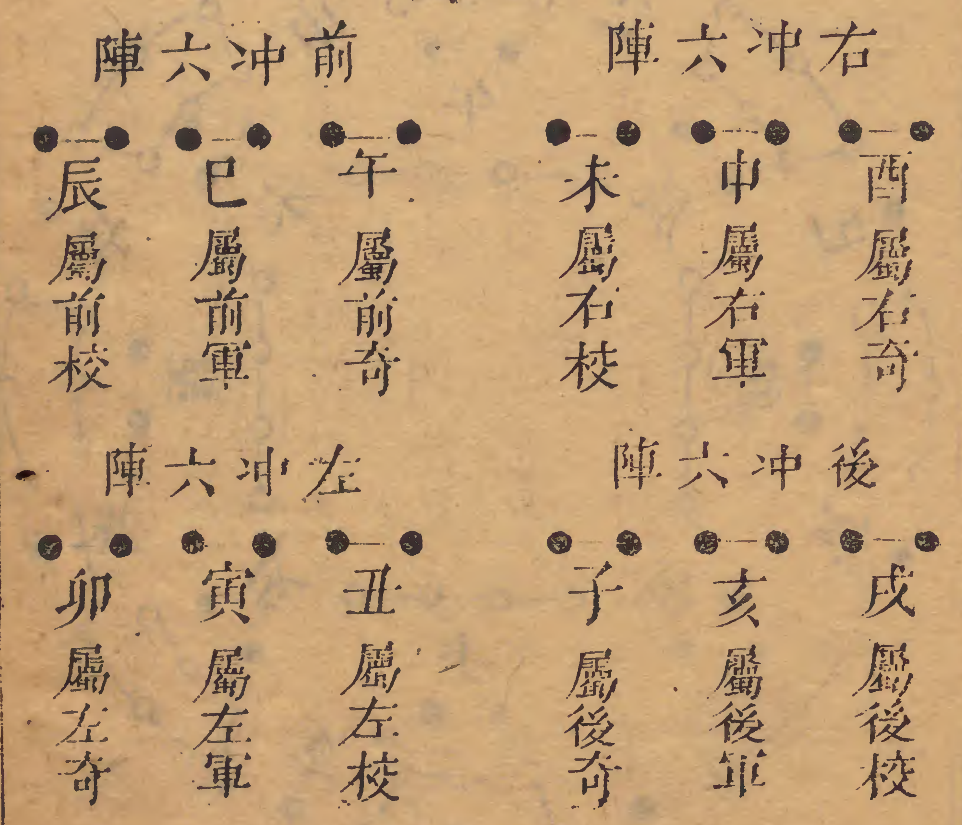 右冲六陣
酉屬右奇
申屬右軍
未屬右校
前冲六陣
午屬前奇
巳屬前軍
辰屬前校
後冲六陣
戌屬後校
亥屬後軍
子屬後奇
左冲六陣
丑屬左校
寅屬左軍
卯屬左奇